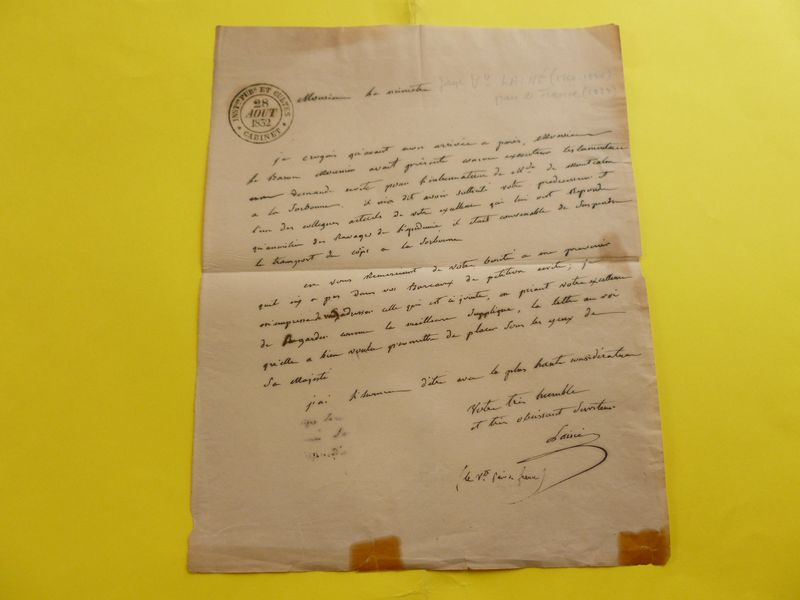 INSTon PUBe ET CULTES
28
AOUT
1832
* CABINET *
Monsieur le ministre
je croyais qu'avant mon arrivée a paris, Monsieur
le Baron Mounier avait présenté comme executeur testamentaire
une demande écrite pour l'inhumation de Mde de Montcalm
a la Sorbonne. il m'a dit avoir sollicité votre prédécesseur et
l'un des collegues actuels de votre excellence qui lui ont répondu
qu'au milieu des Ravages de l'épidémie il était convenable de suspendre
le transport du corps a la Sorbonne
en vous Remerciant de votre bonté a me prévenir
qu'il n'y a pas dans vos Bureaux de pétition écrite, je
m'empresse de vous adresser celle qui est ci jointe, en priant votre excellence
de Regarder comme la meilleure supplique, la lettre au roi
qu'elle a bien voulu promettre de placer sous les yeux de
Sa Majesté
j'ai l'honneur d'être avec la plus haute considération
Votre très humble
et très obéissant Serviteur
Lainé
(le Vte pair de france)